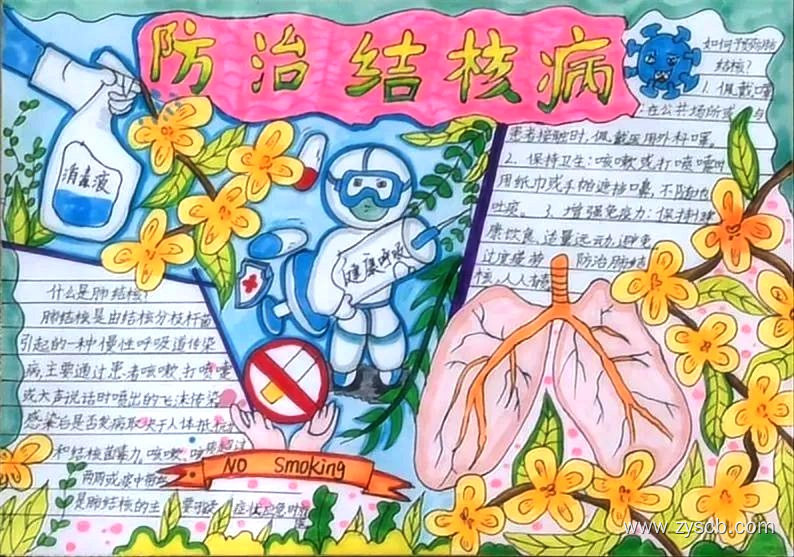 防治结核病
消毒液
健康呼吸
NO Smoking
什么是肺结核?
肺结核是由结核分枝杆菌
引起的一种慢性呼吸道传染
病主要通过患者咳嗽、打喷嚏
或大声说话时喷出的飞沫传染
感染后是否发病取决于人体抵抗
和结核菌毒力,咳嗽、咳
两周或痰中带
是肺结核的主 要
症状应及时
如何预防肺
结核?
1. 佩戴口罩
:在公共场所或 与
患者接触时,佩戴医用外科口罩。
2. 保持卫生:咳嗽或打喷嚏时
用纸巾或手帕遮掩口鼻,不随地
吐痰。 3. 增强免疫力:保持健
康饮食,适量运动,避免
过度疲劳 防治肺结
核,人人有责
www.zyscb.com